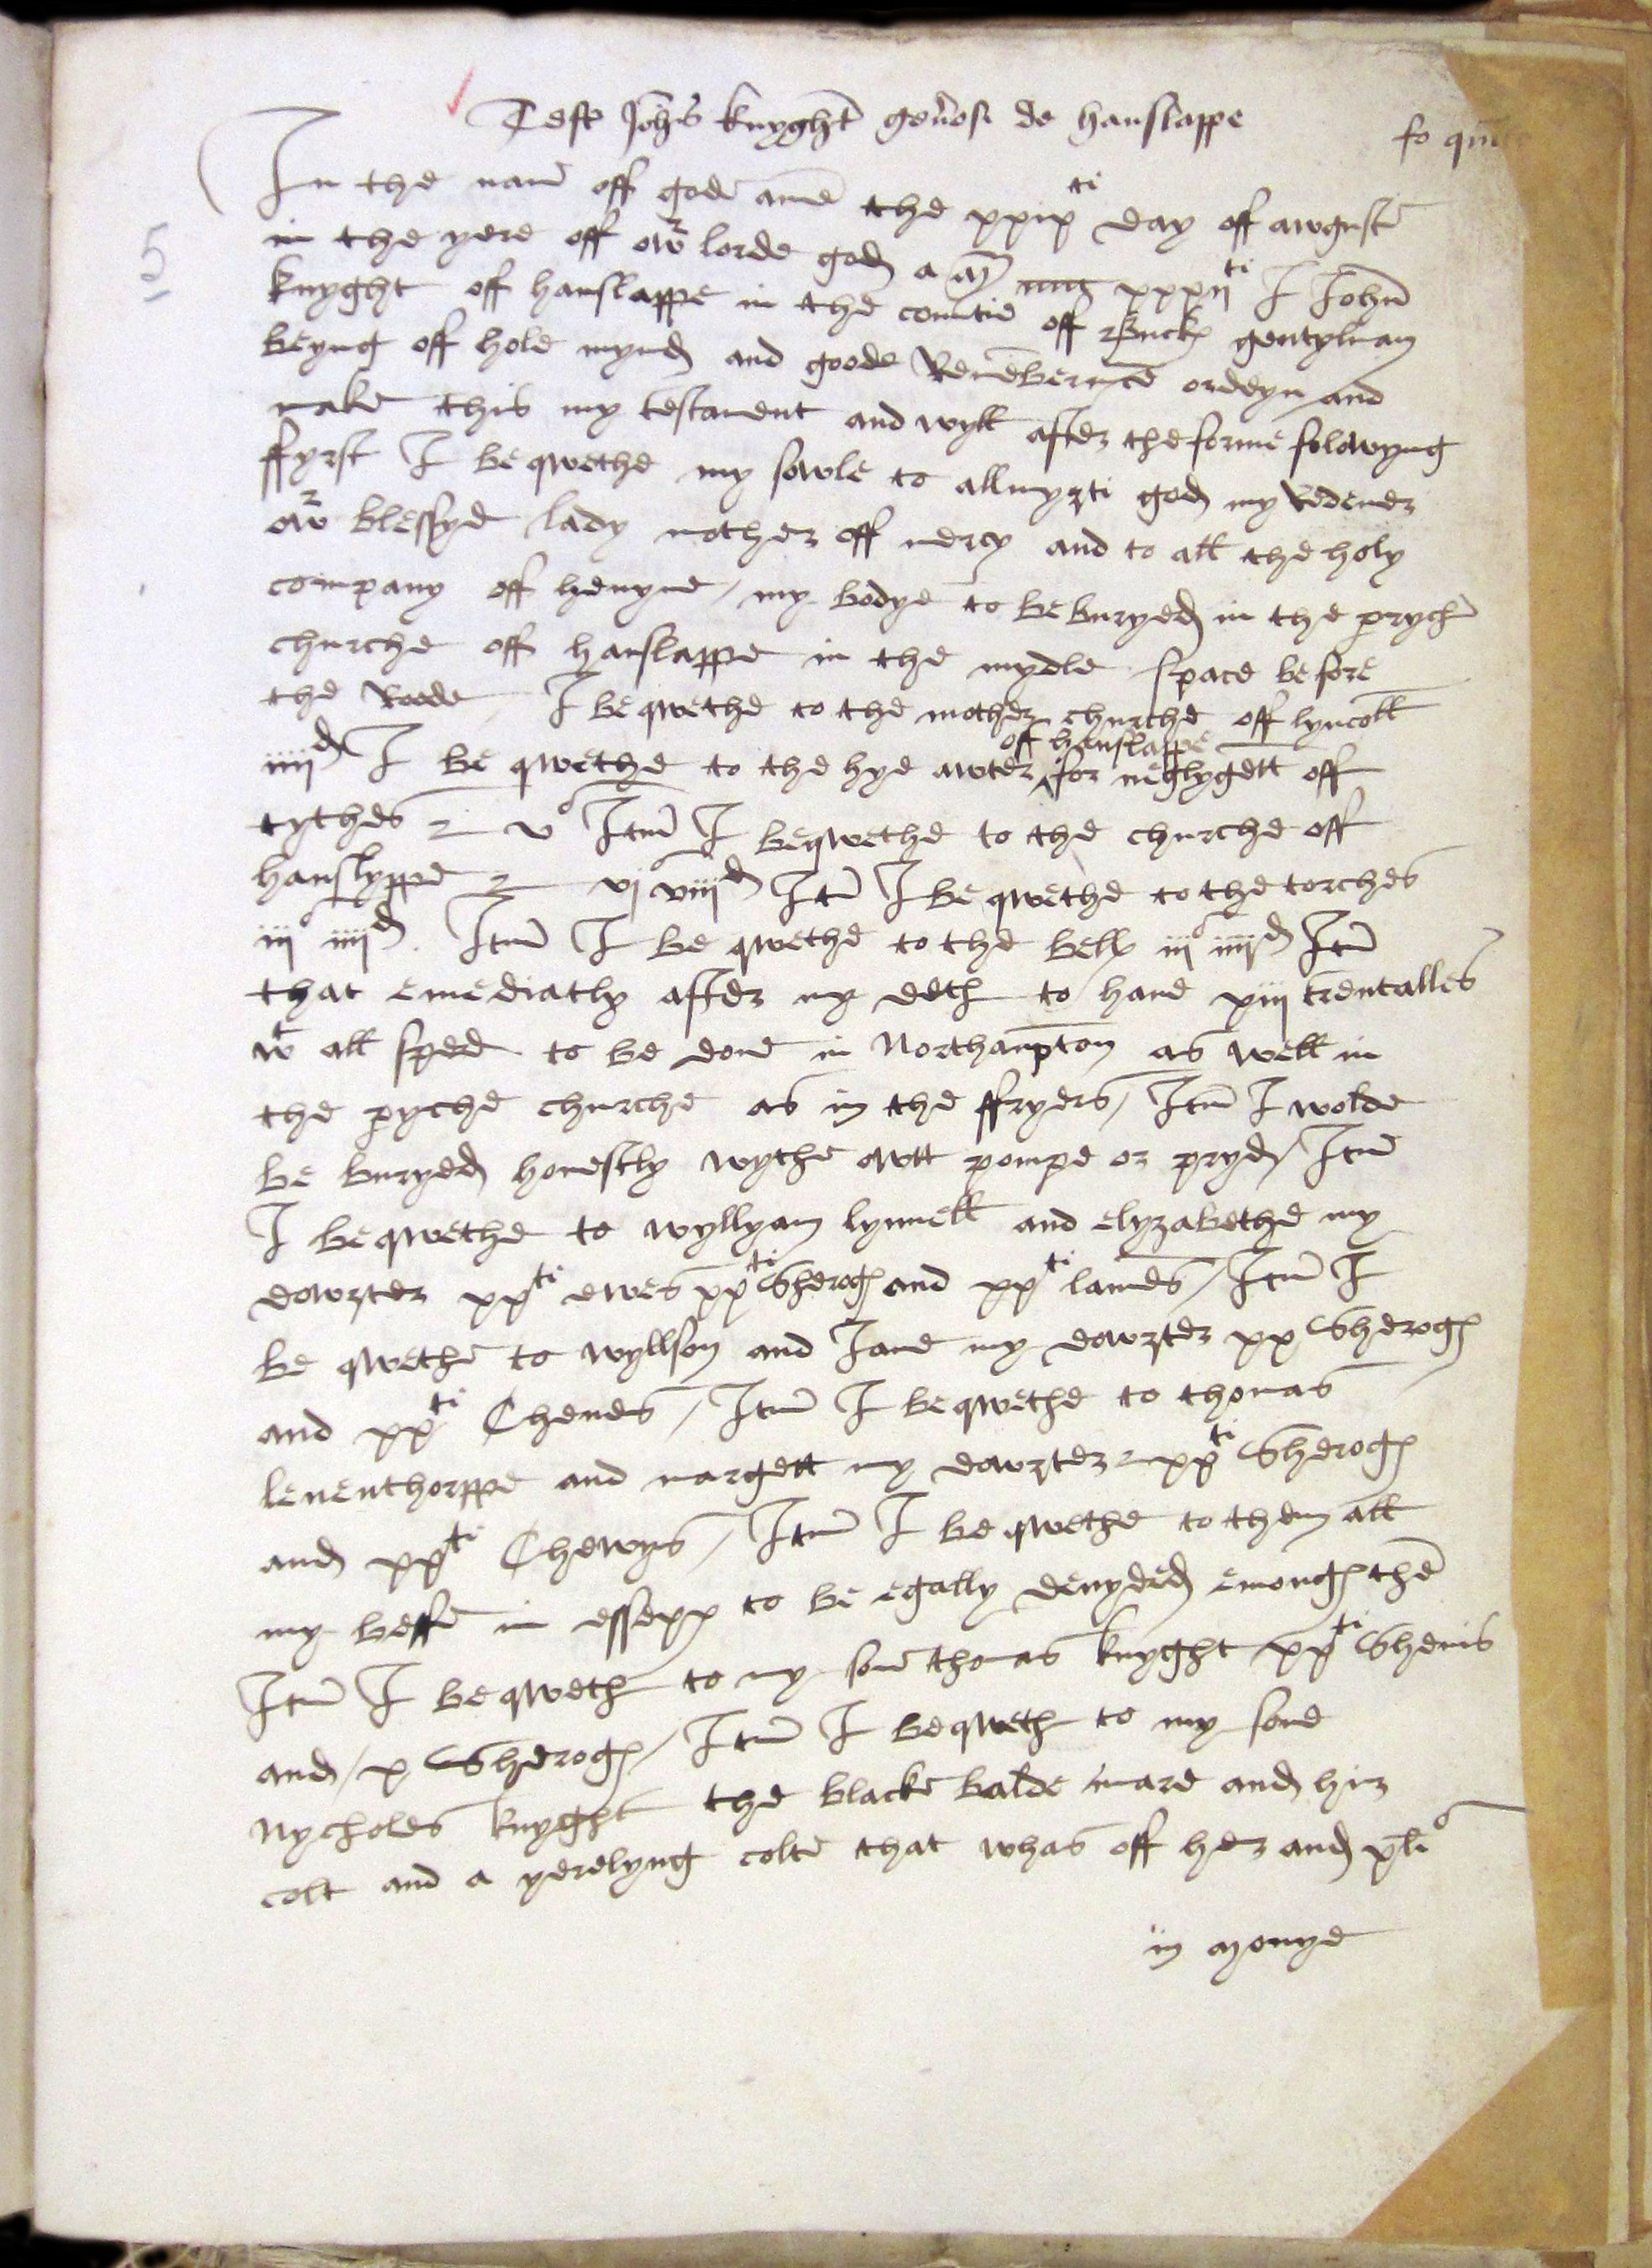 Test Joh'is knyght gen'osi de hanslappe
fo qui
5
In the name off gode ame the xxix ti day off awguste
in the yere off owr lorde god a M xxxij ti I John
knyght off hanslappe in the countie off Buck gentylman
beyng off hole mynd and goode Remebernce ordeyn and
make this my testament and wyll after the forme folowyng
ffyrst I be qwethe my sowle to allmyzti god my Redemer
owr blessyd lady mother off mercy and to all the holy
company off hevyne / my bodye to be buryed in the prych
churche off hanslappe in the mydle space before
the Roode I be qwethe to the mother churche off lyncoll
iiij d I be qwethe to the hye awter off hanslappe for neglygett off
tythes v s Itm I beqwethe to the churche off
hanslyppe vj s viij d Itm I be qwethe to the torches
iij s iiij d Itm I be qwethe to the bell iij s iiij d Itm
that emediatly after my deth to have xiij trentalles
wt all sped to be done in Northampton as well in
the pyche churche as in the ffryers / Itm I wolde
be buryed honestly wythe owtt pompe or pryd / Itm
I beqwethe to wyllyam lynnell and elyzabethe my
dowzter xx ti ewes xx ti Sherog and xx ti lames / Itm I
be qwethe to wyllson and Jane my dowzter xx Sherog
and xx ti Cheves / Itm I beqwethe to thomas
leventhorppe and margett my dowzter xx ti Sherog
and xx ti Chewys / Itm I be qwethe to them all
my beffe in essexx to be egally devyded emong the
Itm I beqweth to my sone thomas knyght xx ti Shevis
and / x Sherog / Itm I beqweth to my sone
Nycholes knyght the blacke balde mare and hir
colt and a yerelyng colte that whas off her and xl s
in Monye